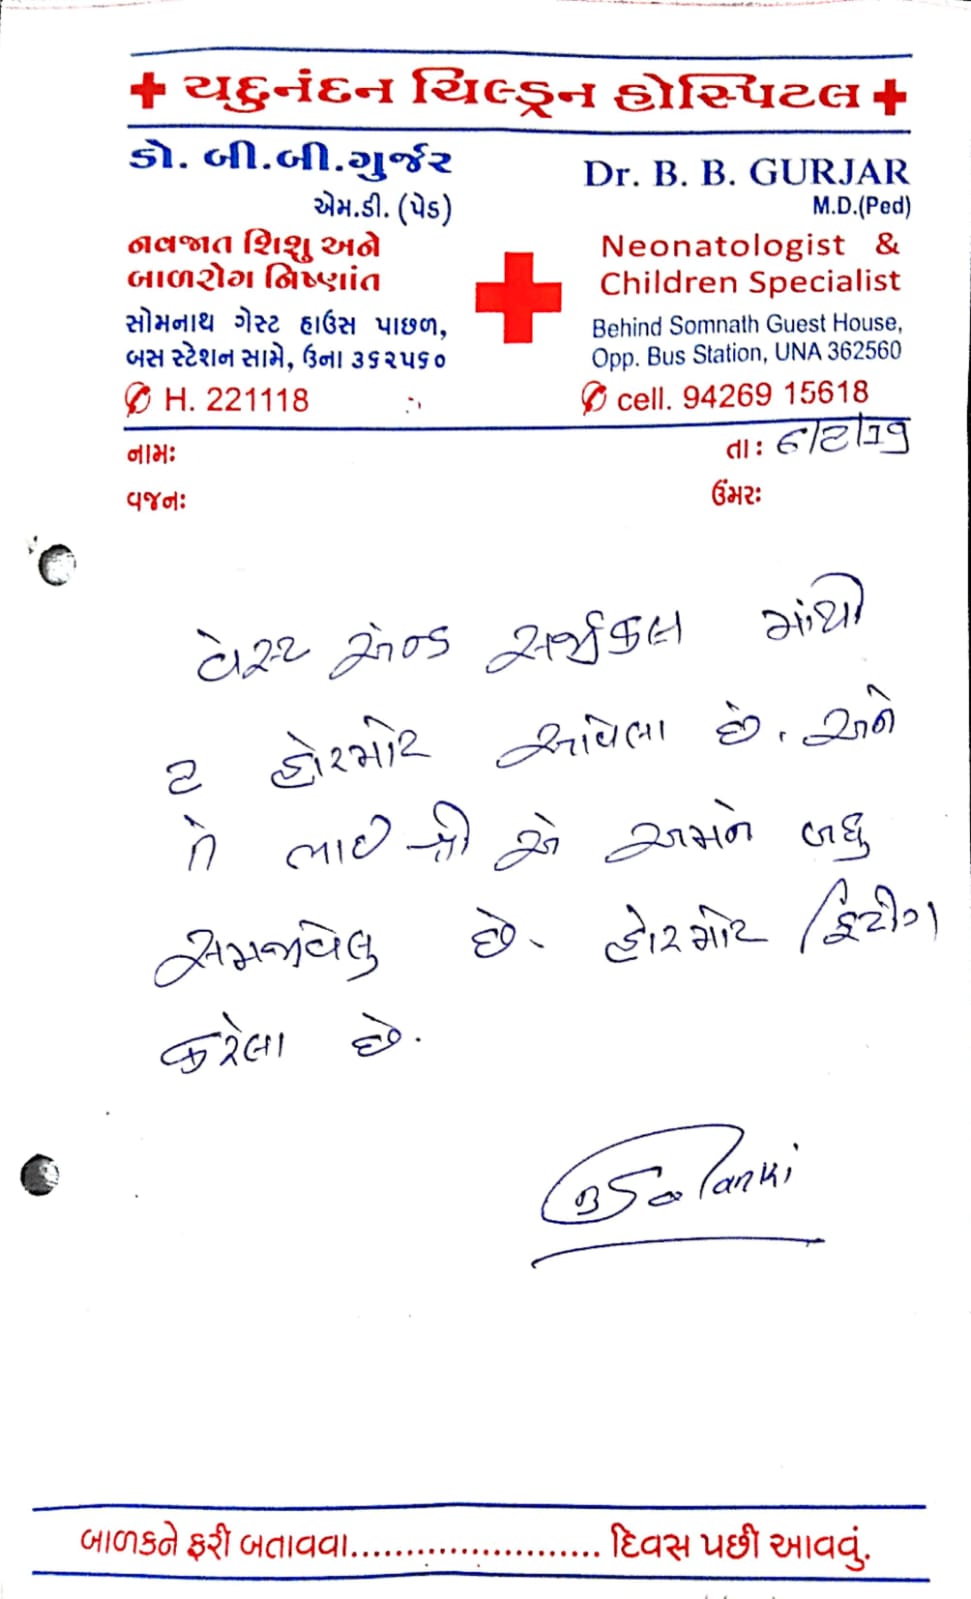 યદુનંદન ચિલ્ડ્રન હોસ્પિટલ
ડો. બી.બી.ગુર્જર
એમ.ડી. (પેડ)
નવજાત શિશુ અને
બાળરોગ નિષ્ણાંત
સોમનાથ ગેસ્ટ હાઉસ પાછળ,
બસ સ્ટેશન સામે, ઉના ૩૬૨૫૬૦
H. 221118
Dr. B. B. GURJAR
M.D.(Ped)
Neonatologist &
Children Specialist
Behind Somnath Guest House,
Opp. Bus Station, UNA 362560
cell. 94269 15618
નામઃ
તા: ૬/૮/19
વજનઃ
ઉંમરઃ
વેસ્ટ એન્ડ સર્જીકલ માંથી
૨ હોરમોટ આવેલા છે. અને
તે ભાઈ શ્રી એ અમને બધુ
સમજાવેલુ છે. હોરમોટ ફિટીંગ
કરેલા છે.
BSolanki
બાળકને ફરી બતાવવા....................... દિવસ પછી આવવું.